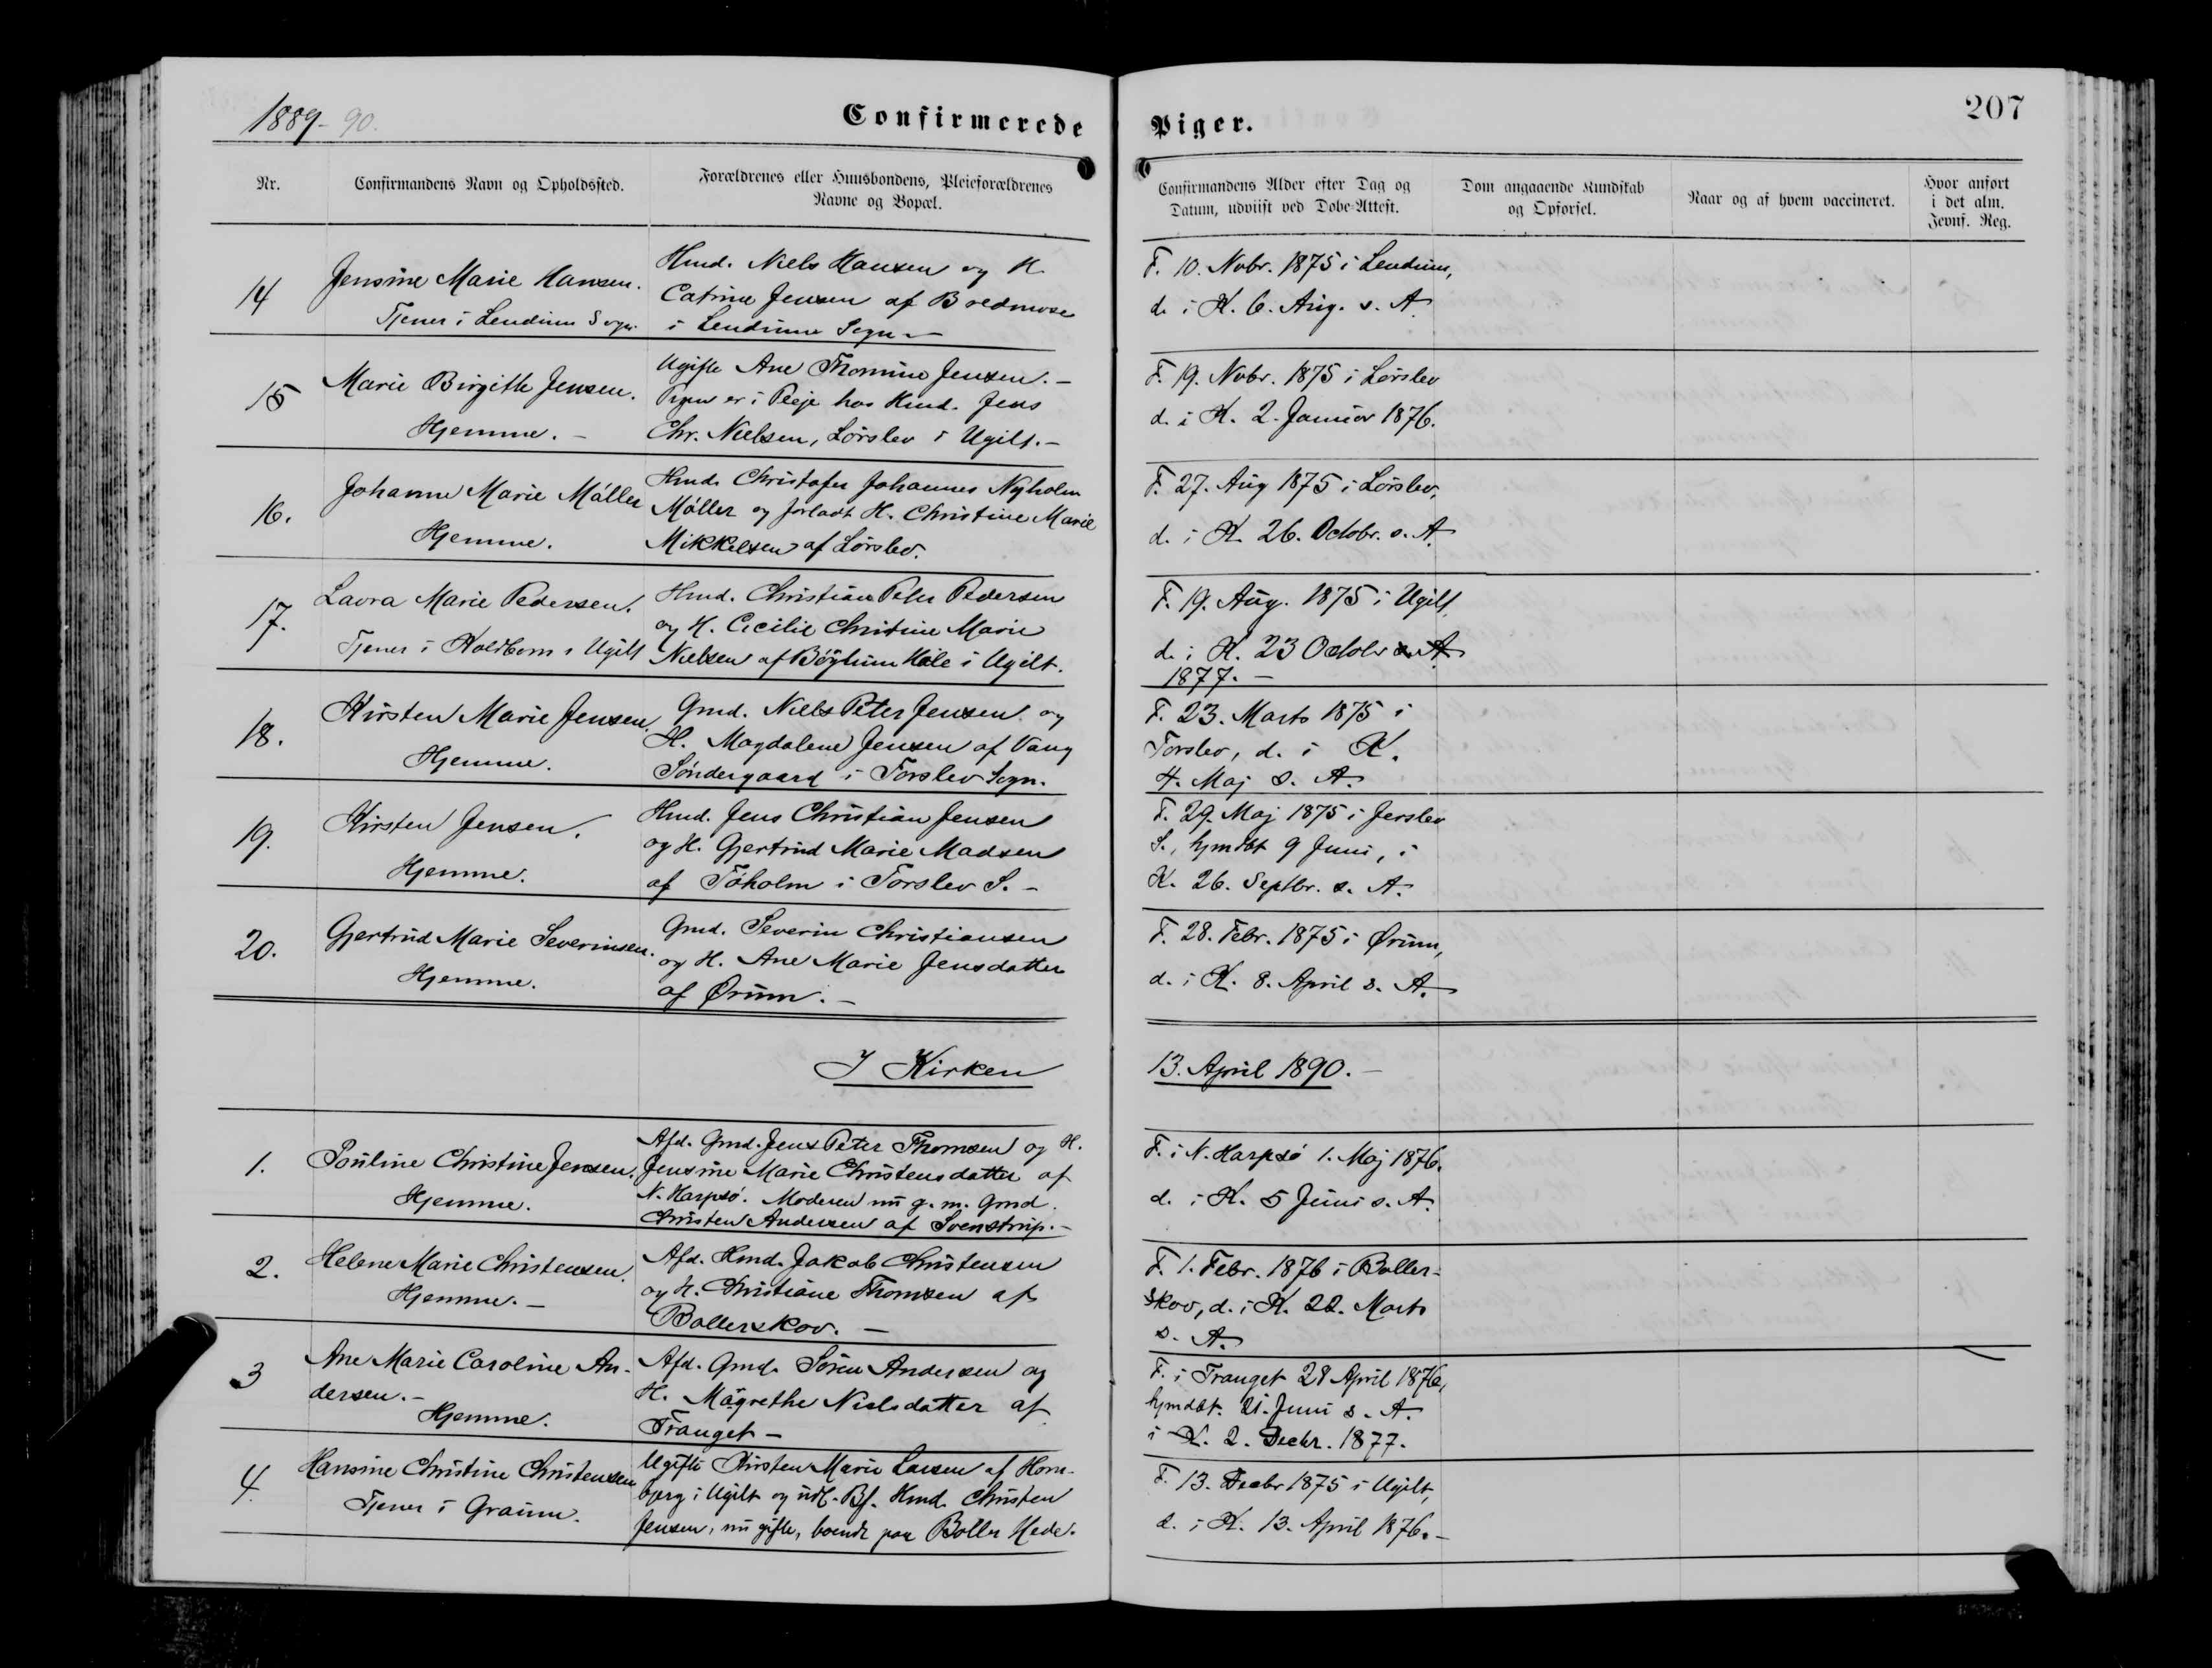 1889-90.
Confirmerede Piger.
207
Nr.
Confirmandens Navn og Opholdssted.
Forældrenes eller Huusbondens, Pleieforældrenes
Navne og Bopæl.
Confirmandens Alder efter Dag og
Datum, udviist ved Døbe-Attest.
Dom angaaende Kundskab
og Opførsel.
Naar og af hvem vaccineret.
Hvor anført
i det alm.
Jevnf. Reg.
14
Jensine Marie Hansen.
Tjener i Lendum Sogn.
Hmd. Niels Hansen og H.
Catrine Jensen af Bredmose
i Lendum Sogn.
F. 10. Nobr. 1875 i Lendum,
d. i K. 6. Aug. s. A.
15
Marie Birgithe Jensen.
Hjemme. -
Ugifte Ane Thomine Jensen. -
Pigen er i Pleje hos Hmd. Jens
Chr. Nielsen, Lørslev i Ugilt. -
F. 19. Nobr. 1875 i Lørslev
d. i K. 2. Januar 1876.
16.
Johanne Marie Møller
Hjemme.
Hmd. Christofer Johannes Nyholm
Møller og forladt H. Christine Marie
Mikkelsen af Lørslev.
F. 27. Aug 1875 i Lørslev,
d. i K. 26. Octobr. s. A.
17.
Laura Marie Pedersen.
Tjener i Holdbom i Ugilt
Hmd. Christian Peter Pedersen
og H. Cecilie Christine Marie
Nielsen af Bøglum Hale i Ugilt.
F. 19. Aug. 1875 i Ugilt
d. i K. 23 Octobr s. A.
1877. -
18.
Kirsten Marie Jensen.
Hjemme.
Gmd. Niels Peter Jensen og
H. Magdalene Jensen af Vang
Søndergaard i Torslev Sogn.
F. 23. Marts 1875 i
Torslev, d. i K.
4. Maj s. A.
19.
Kirsten Jensen.
Hjemme.
Hmd. Jens Christian Jensen
og H. Gjertrud Marie Madsen
af Tøholm i Torslev S. -
F. 29. Maj 1875 i Jerslev
S., hjmdbt 9 Juni, i
K. 26. Septbr. s. A.
20.
Gjertrud Marie Severinsen.
Hjemme.
Gmd. Severin Christiansen
og H. Ane Marie Jensdatter
af Ørum. -
F. 28. Febr. 1875 i Ørum,
d. i K. 8. April s. A.
I Kirken 13. April 1890. -
1.
Pouline Christine Jensen.
Hjemme.
Afd. Gmd. Jens Peter Thomsen og H.
Jensine Marie Christensdatter af
N. Harpsø. Moderen nu g. m. Gmd.
Christen Andersen af Svenstrup. -
F. i N. Harpsø 1. Maj 1876.
d. i K. 5 Juni s. A.
2.
Helene Marie Christensen.
Hjemme. -
Afd. Hmd. Jakob Christensen
og H. Christiane Thomsen af
Bollerskov. -
F. 1. Febr. 1876 i Boller-
skov, d. i K. 22. Marts
s. A.
3
Ane Marie Caroline An-
dersen. -
Hjemme.
Afd. Gmd. Søren Andersen og
H. Magrethe Nielsdatter af
Tranget -
F. i Tranget 28 April 1876,
hjmdbt. 21. Juni s. A.
i K. 2. Decbr. 1877.
4.
Hansine Christine Christensen
Tjener i Graum.
Ugifte Kirsten Marie Larsen af Horn-
bjerg i Ugilt og udl. Bf. Hmd. Christen
Jensen, nu gifte, boende paa Boller Hede.
F. 13. Decbr 1875 i Ugilt,
d. i K. 13. April 1876. -